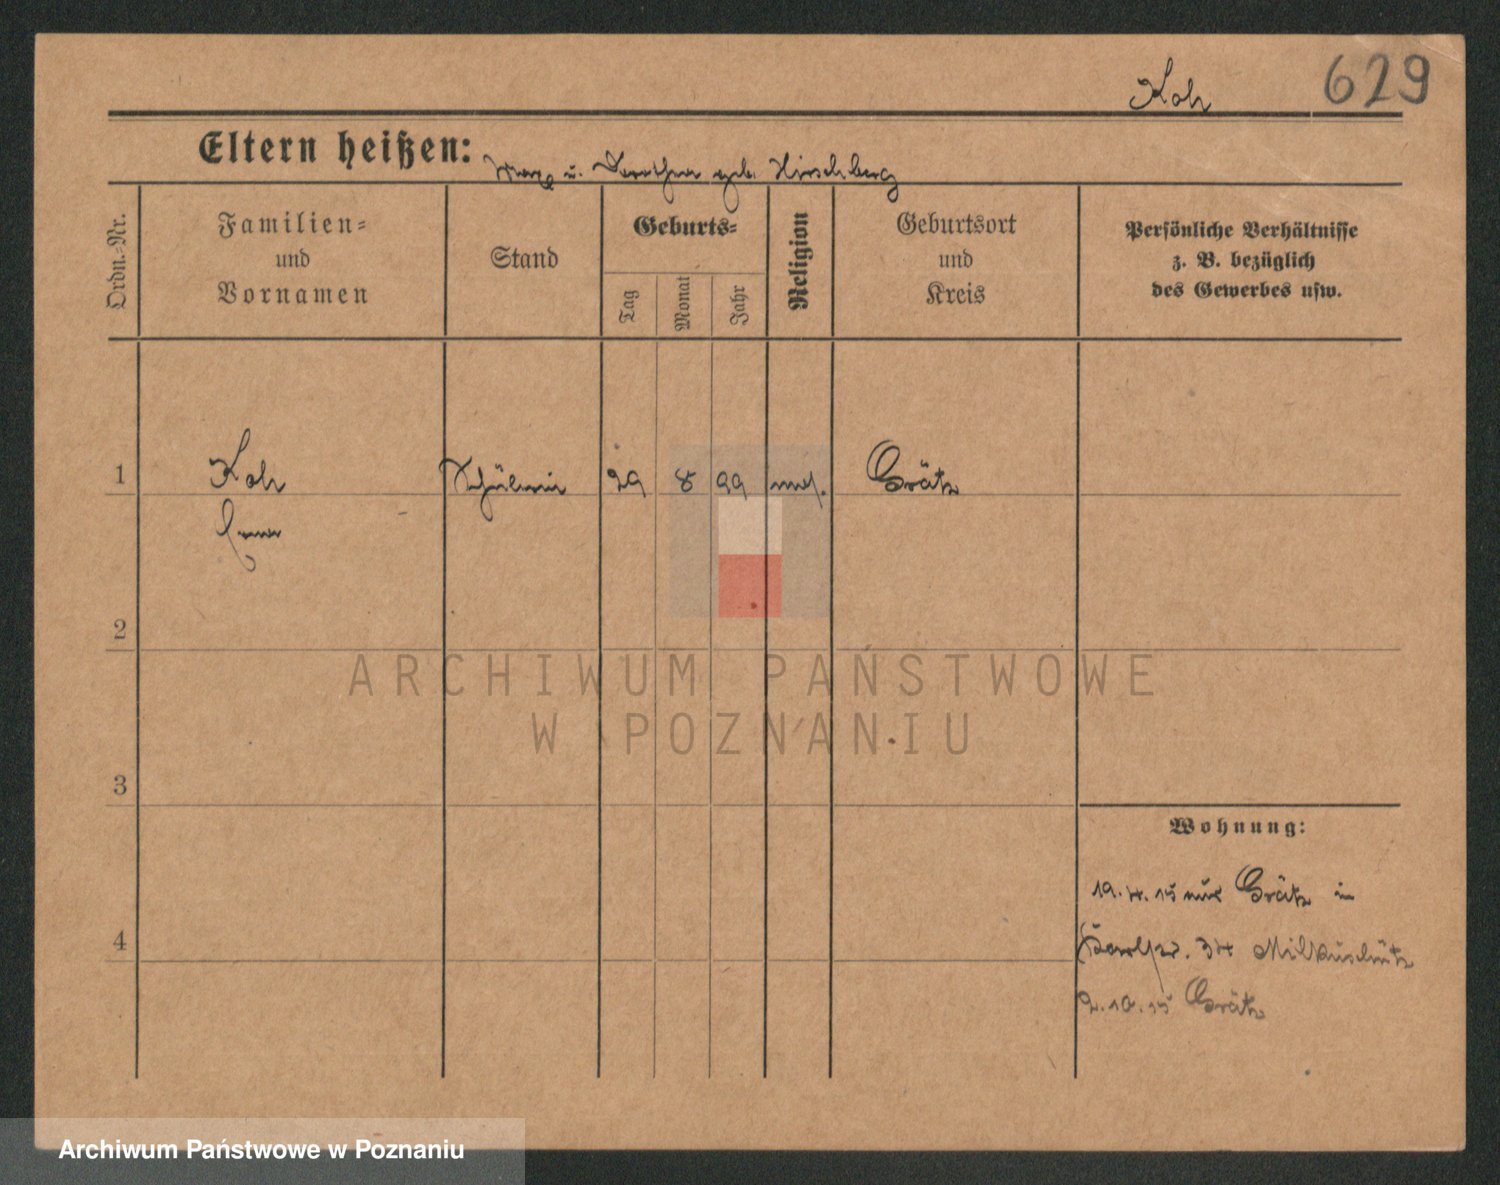 Koh
629
Eltern heißen: Max u. Dorothea geb. Hirschberg
Ordn.-Nr.
Familien-
und
Vornamen
Stand
Geburts-
Tag
Monat
Jahr
Religion
Geburtsort
und
Kreis
Persönliche Verhältnisse
z. B. bezüglich
des Gewerbes usw.
1 Koh Schülerin 29 8 99 mos. Grätz
2
ARCHIWUM PAŃSTWOWE
W POZNANIU
3
Wohnung:
19.4.15 aus Grätz in
4
34
2.10.15 Grätz
Archiwum Państwowe w Poznaniu